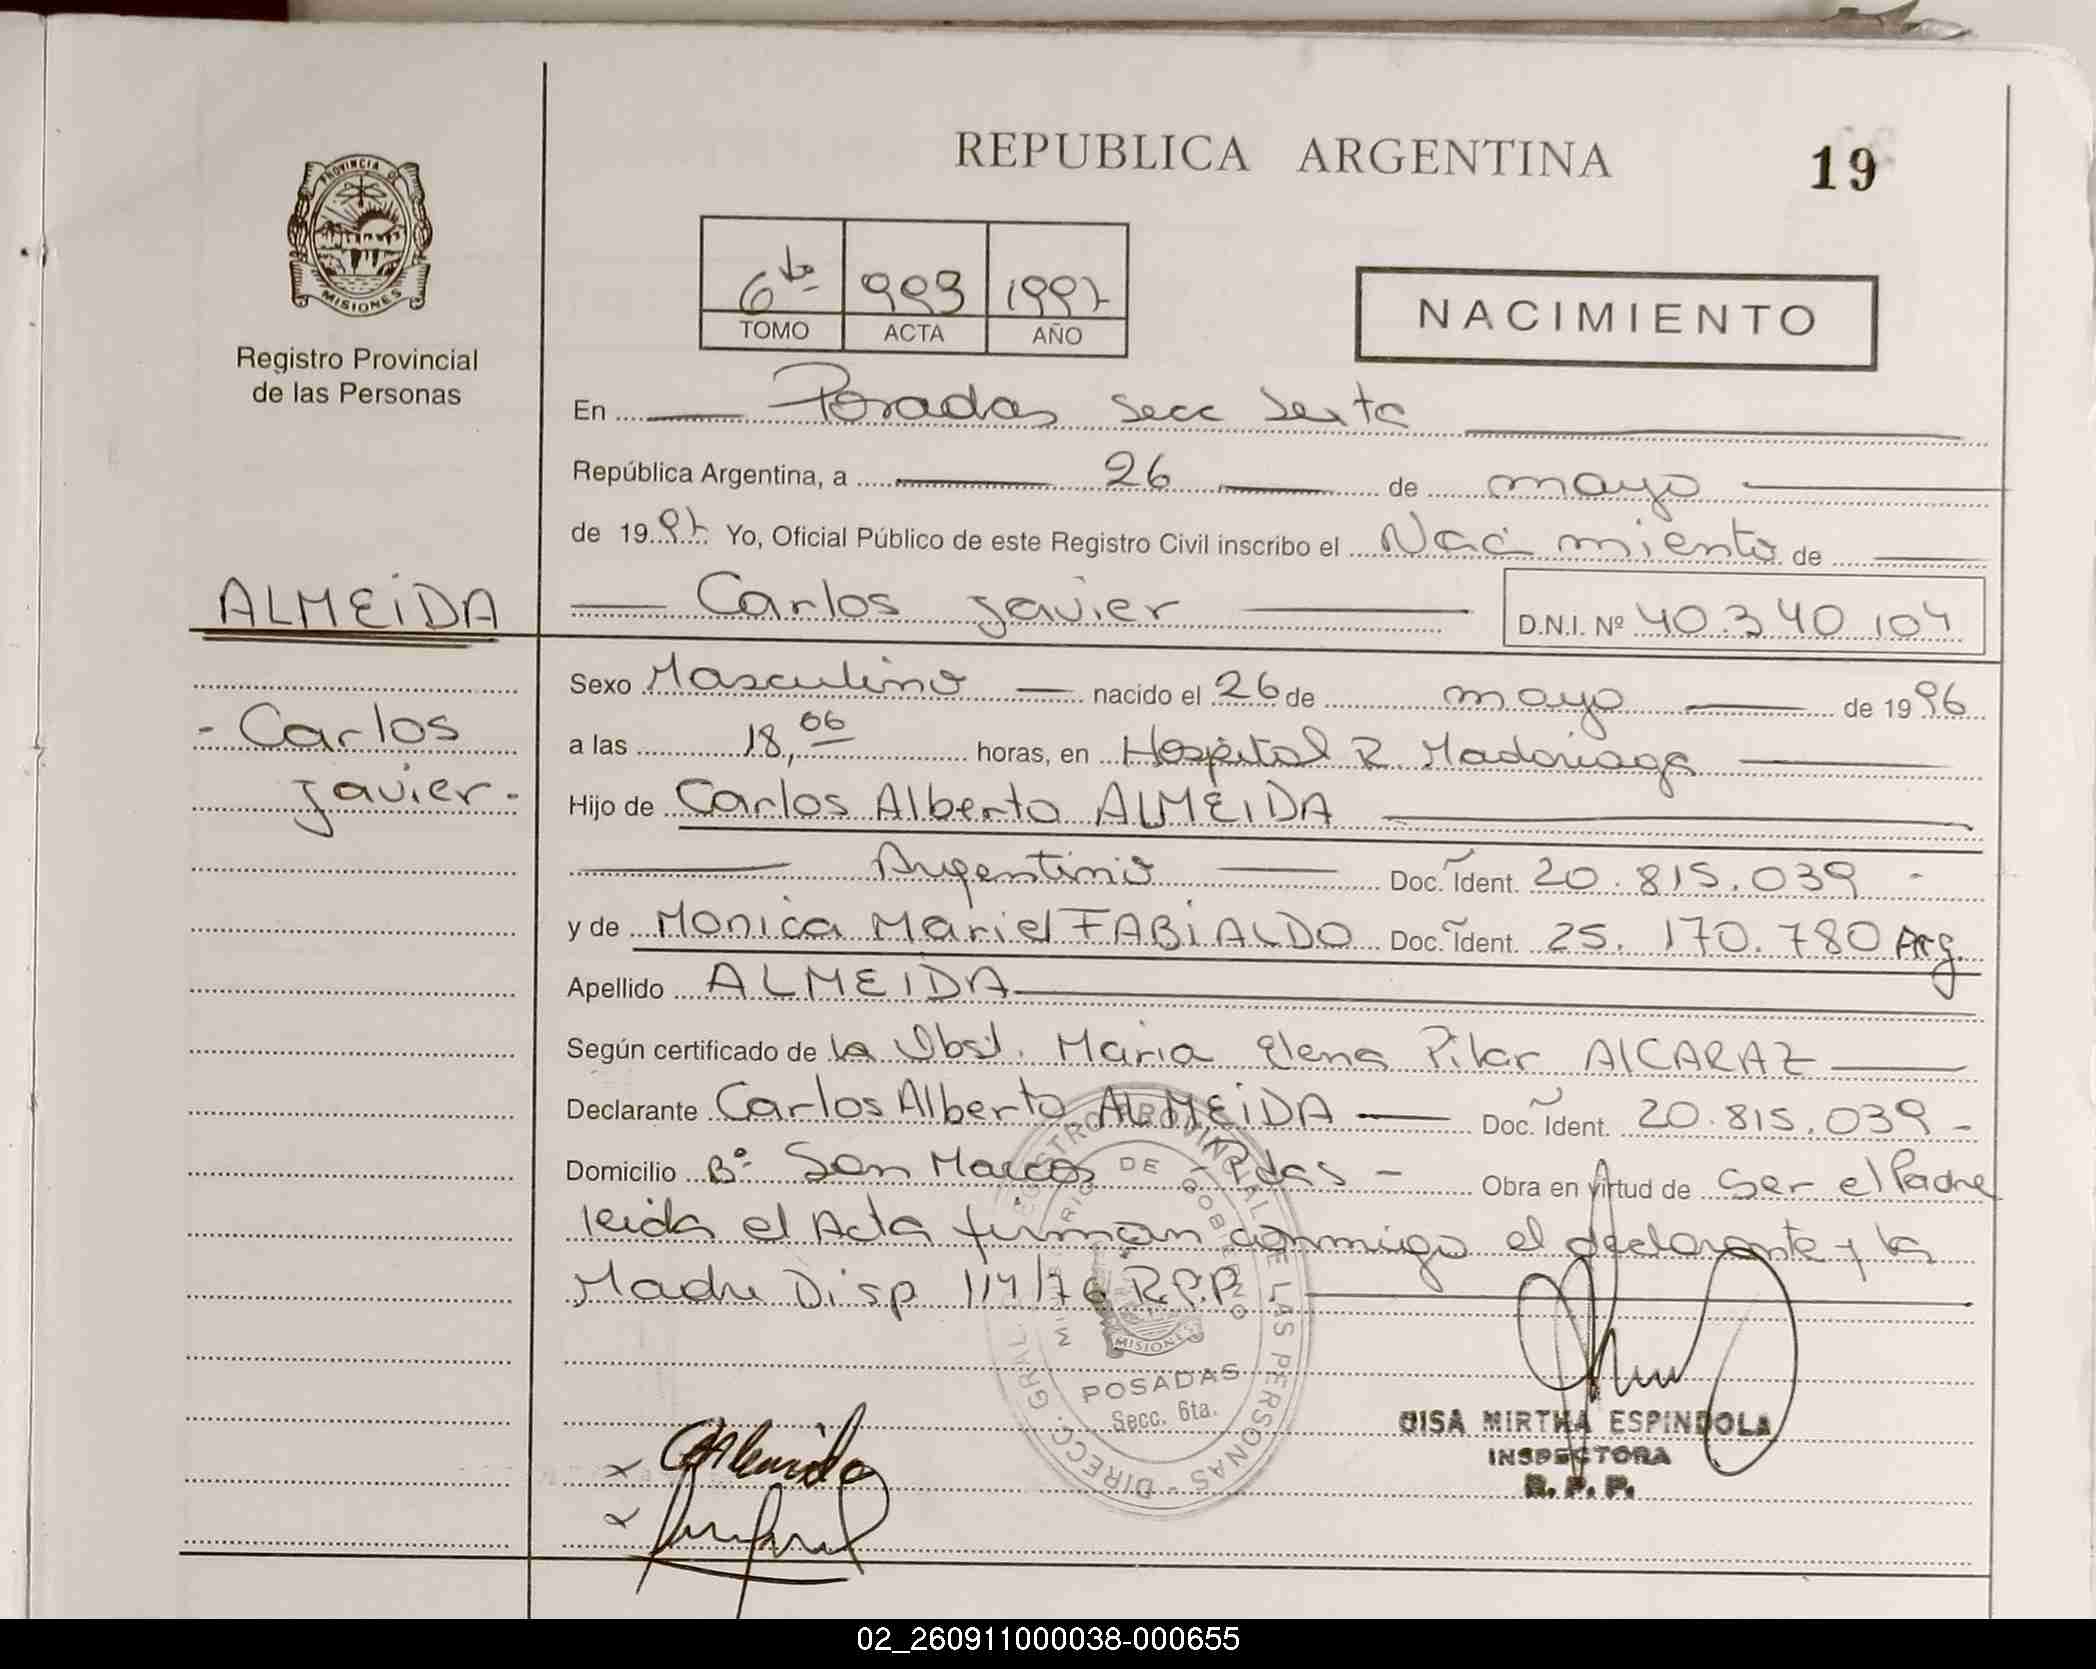 REPUBLICA ARGENTINA
19
PROVINCIA DE
MISIONES
Registro Provincial
de las Personas
6to 993 1997
TOMO ACTA AÑO
NACIMIENTO
En Posadas Secc Sexta
República Argentina, a 26 de mayo
de 1997 Yo, Oficial Público de este Registro Civil inscribo el Nacimiento de
ALMEiDA
Carlos Javier
D.N.I. Nº 40.340.104
Sexo Masculino nacido el 26 de mayo de 1996
- Carlos
Javier -
a las 18,06 horas, en Hospital R. Madariaga
Hijo de Carlos Alberto ALMEiDA
Argentino Doc. Ident. 20.815.039 -
y de Monica Mariel FABiALDO Doc. Ident. 25.170.780 Arg.
Apellido ALMEIDA
Según certificado de la Obst. Maria Elena Pilar AlCARAZ
Declarante Carlos Alberto ALMEiDA Doc. Ident. 20.815.039 -
Domicilio Bº San Marcos - Pdas - Obra en virtud de Ser el Padre
leida el Acta firman conmigo el declarante y la
Madre Disp 114/76 R.P.P.
DIRECC. GRAL. REGISTRO PROVINCIAL DE LAS PERSONAS -
MINISTERIO DE GOBIERNO
MISIONES
POSADAS
Secc. 6ta.
MIRTHA ESPINDOLA
INSPECTORA
R. P. P.
x
x
02_260911000038-000655